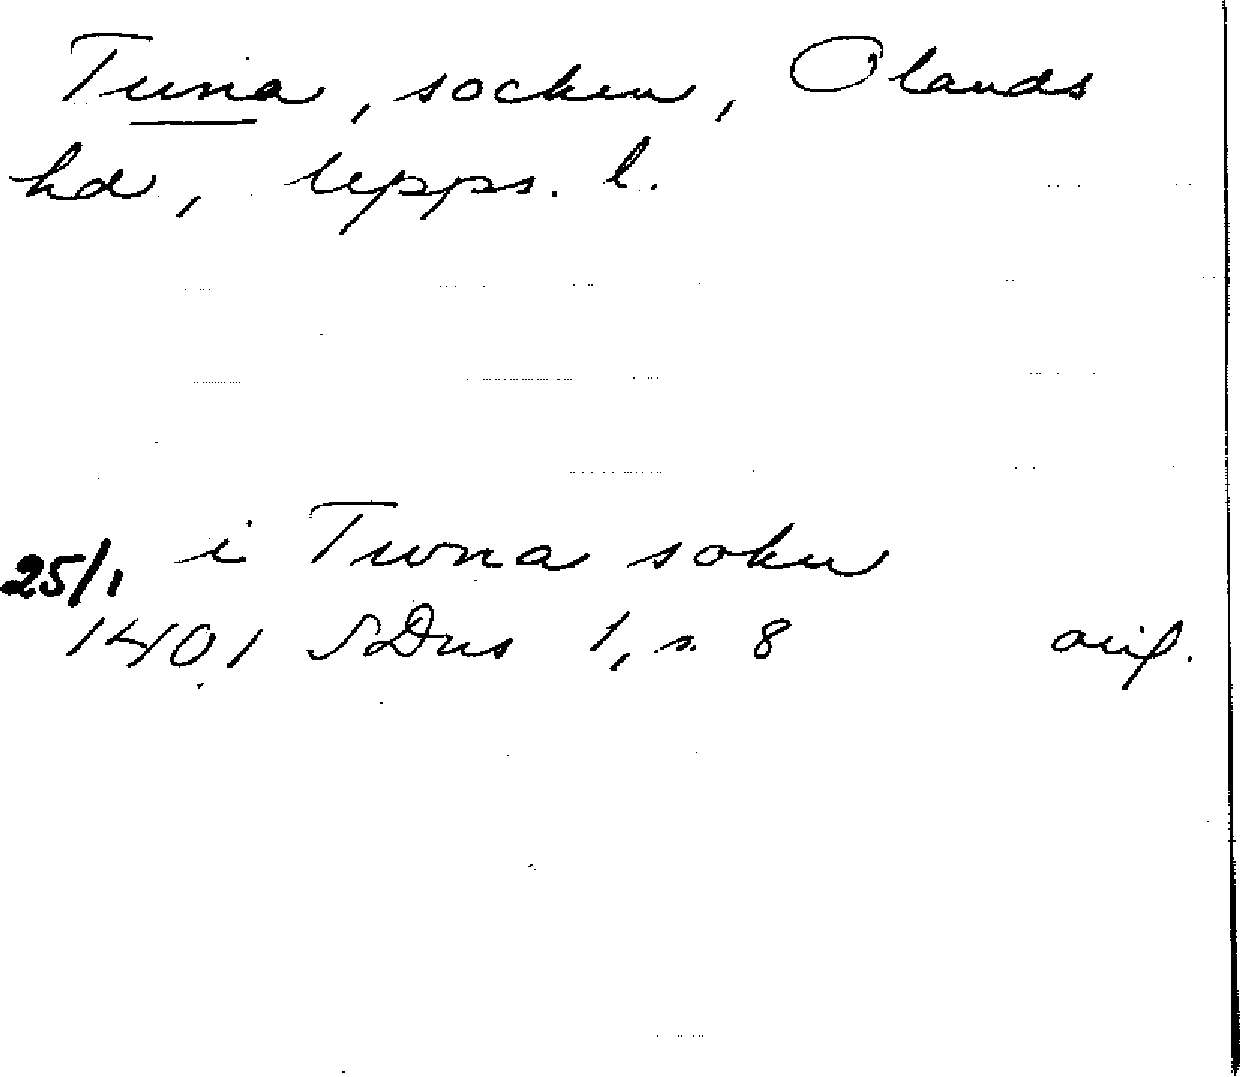 Tuna, socken, Olands
hd, Upps. l.
i Twna sokn
25/1
1401 SDns 1, s. 8 orig.